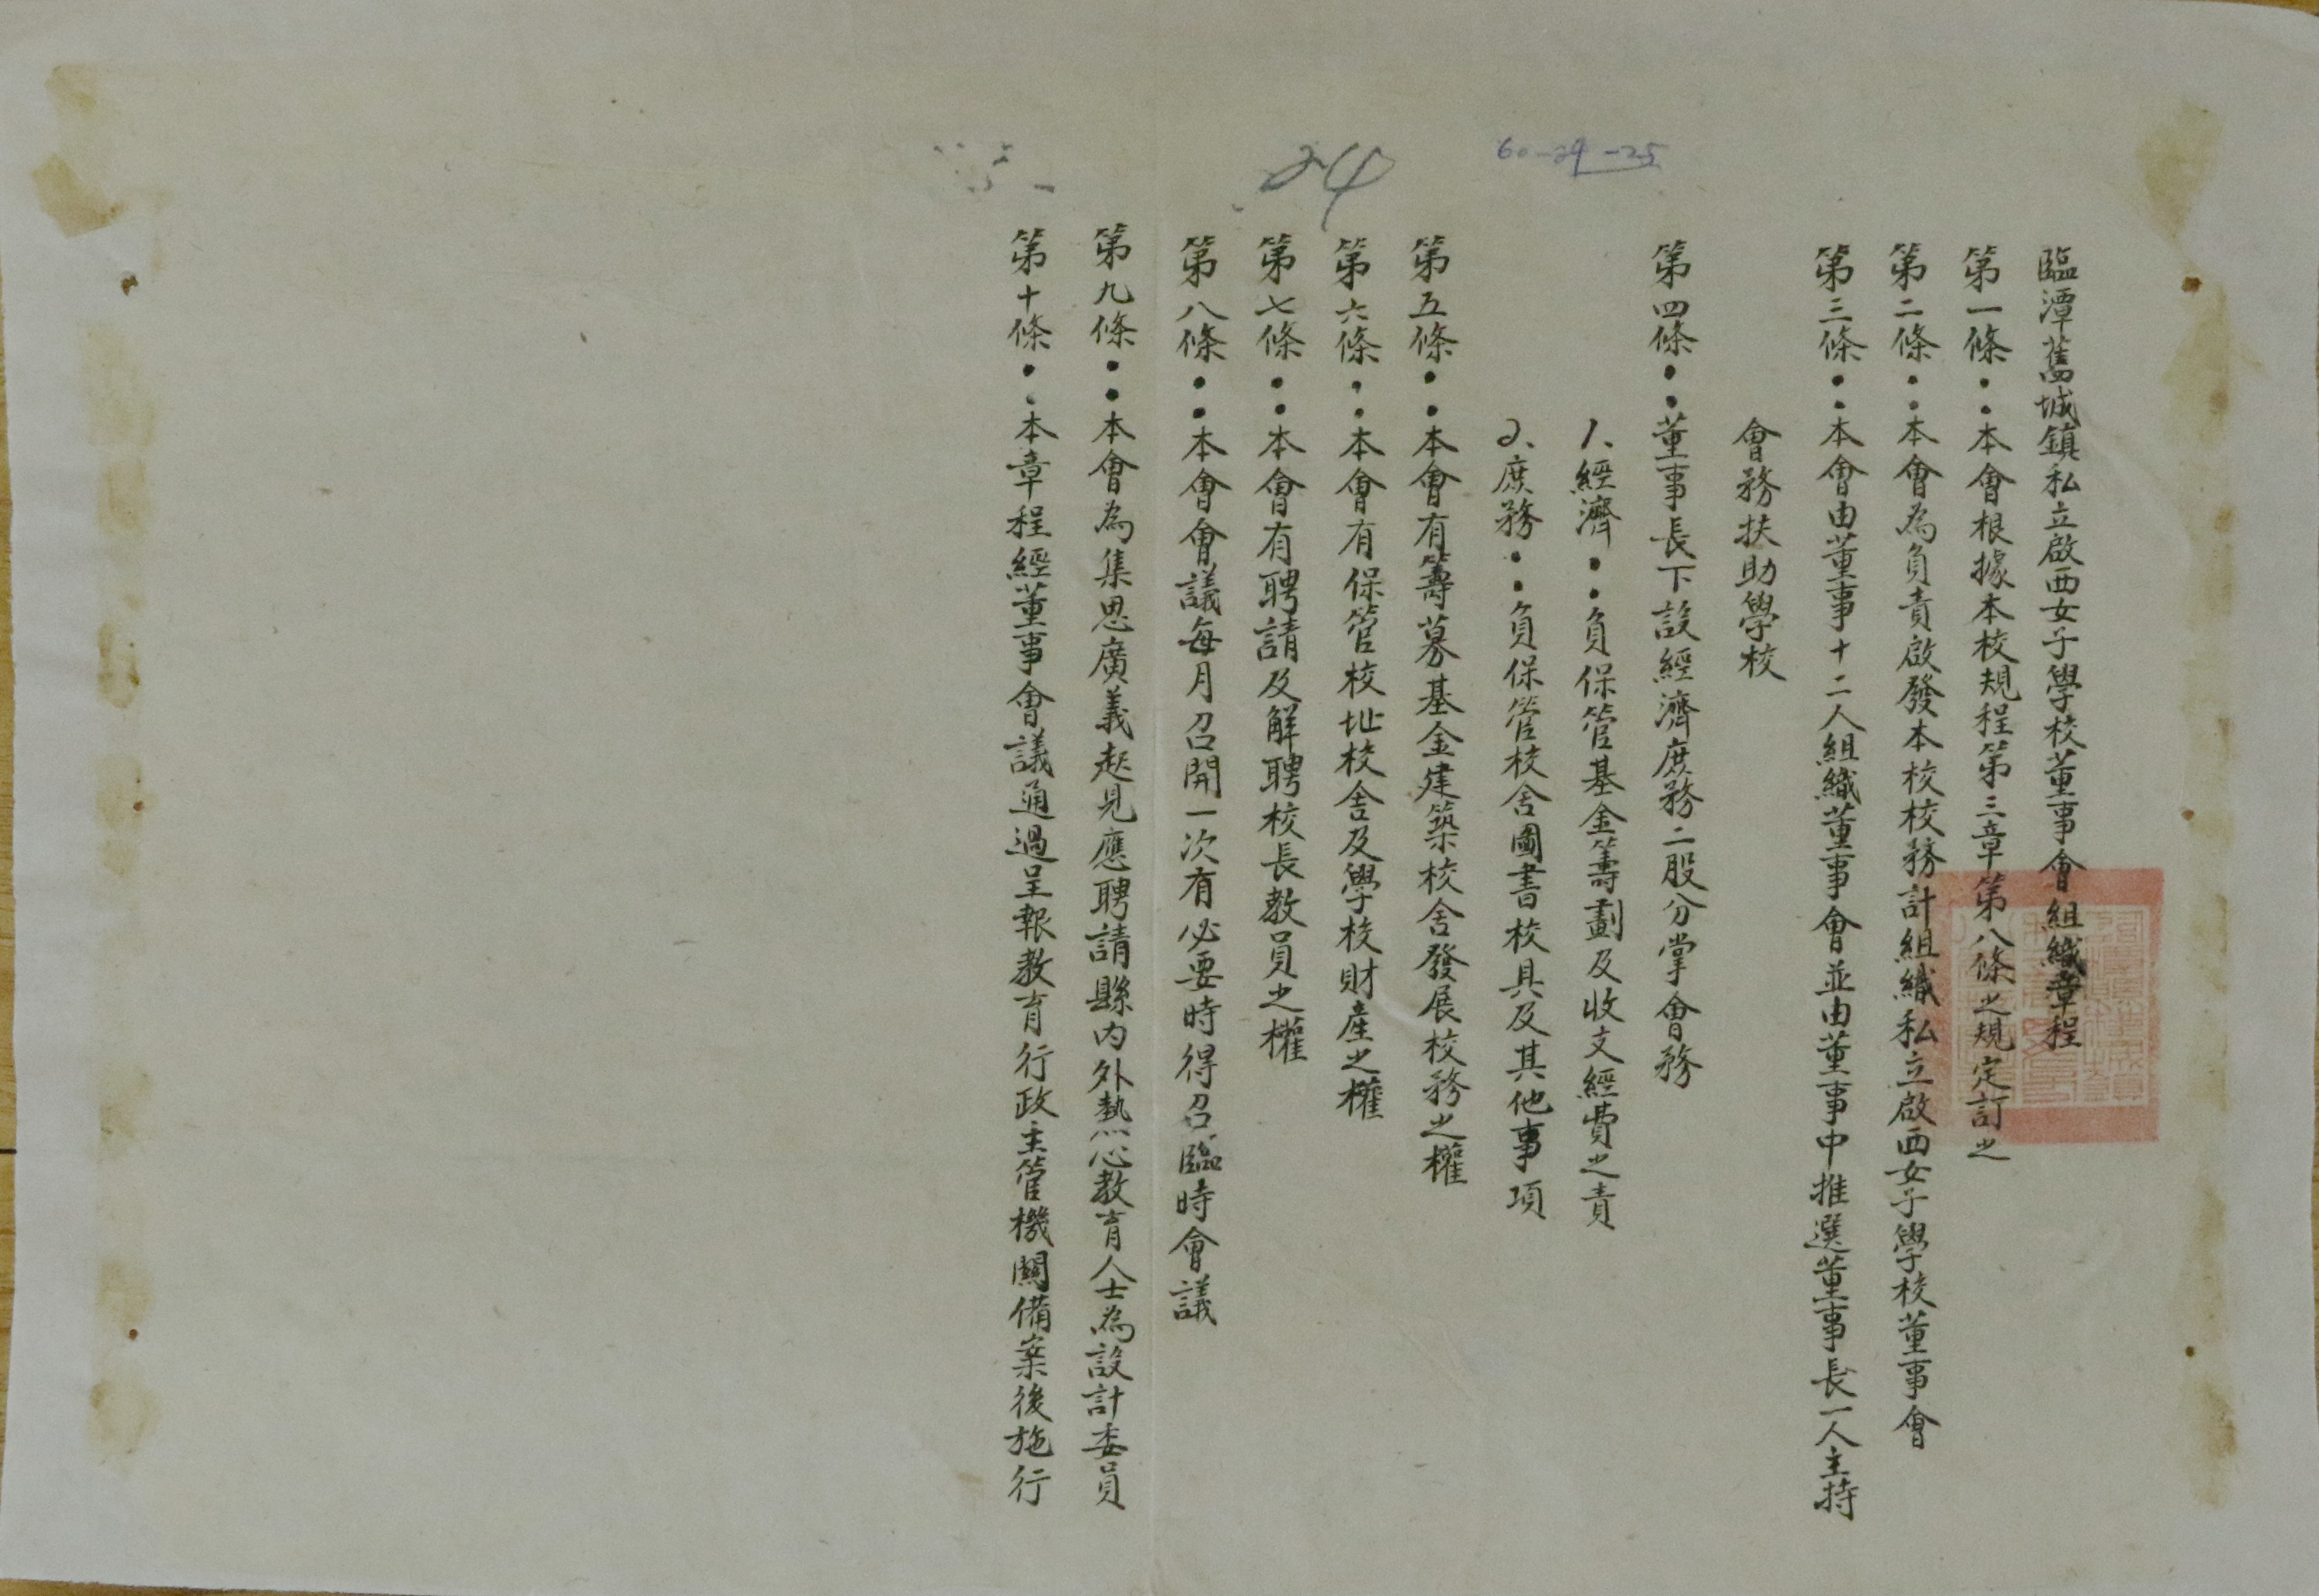 臨潭舊城鎮私立啟西女子學校董事會組織章程
第一條··本會根據本校規程第三章第八條之規定訂之
第二條··本會為負責啟發本校校務計組織私立啟西女子學校董事會
第三條··本會由董事十二人組織董事會並由董事中推選董事長一人主持
會務扶助學校
第四條··董事長下設經濟庶務二股分掌會務
1、經濟··負保管基金籌劃及收支經費之責
2、庶務··負保管校舍圖書校具及其他事項
第五條··本會有籌募基金建築校舍發展校務之權
第六條··本會有保管校址校舍及學校財產之權
第七條··本會有聘請及解聘校長教員之權
第八條··本會會議每月召開一次有必要時得召臨時會議
第九條··本會為集思廣義起見應聘請縣內外熱心教育人士為設計委員
第十條··本章程經董事會議通過呈報教育行政主管機關備案後施行
60-29-25
24